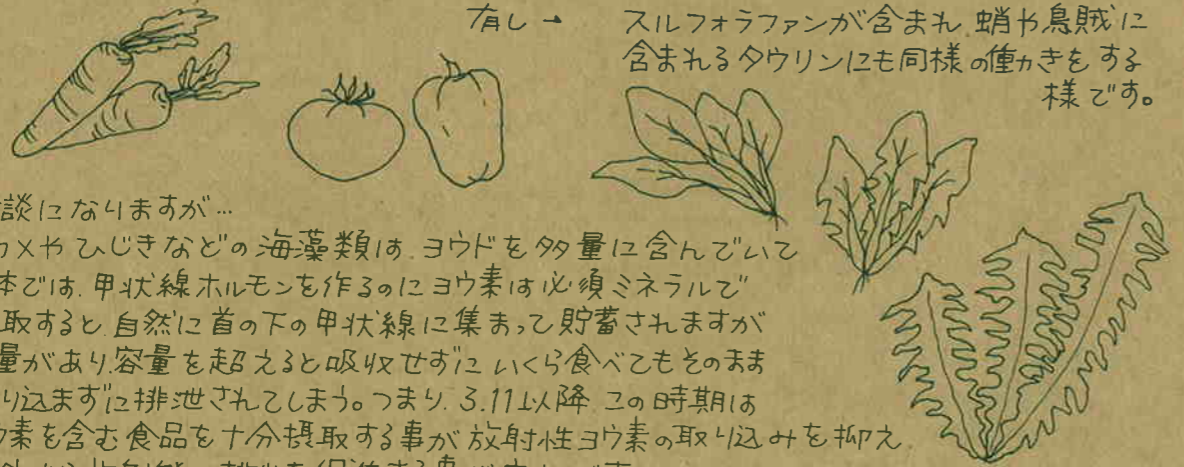 有し→ スルフォラファンが含まれ、蛸や烏賊に
含まれるタウリンにも同様の働かきをする
様です。
談になりますが…
カメやひじきなどの海藻類は、ヨウドを多量に含んでいて
本では、甲状線ホルモンを作るのにヨウ素は必須ミネラルで
取すると、自然に首の下の甲状線に集まって貯蓄されますが
量があり、容量を超えると吸収せずにいくら食べてもそのまま
り込まずに排泄されてしまう。つまり、3.11以降、この時期は
素を含む食品を十分摂取する事が放射性ヨウ素の取り込みを抑え、